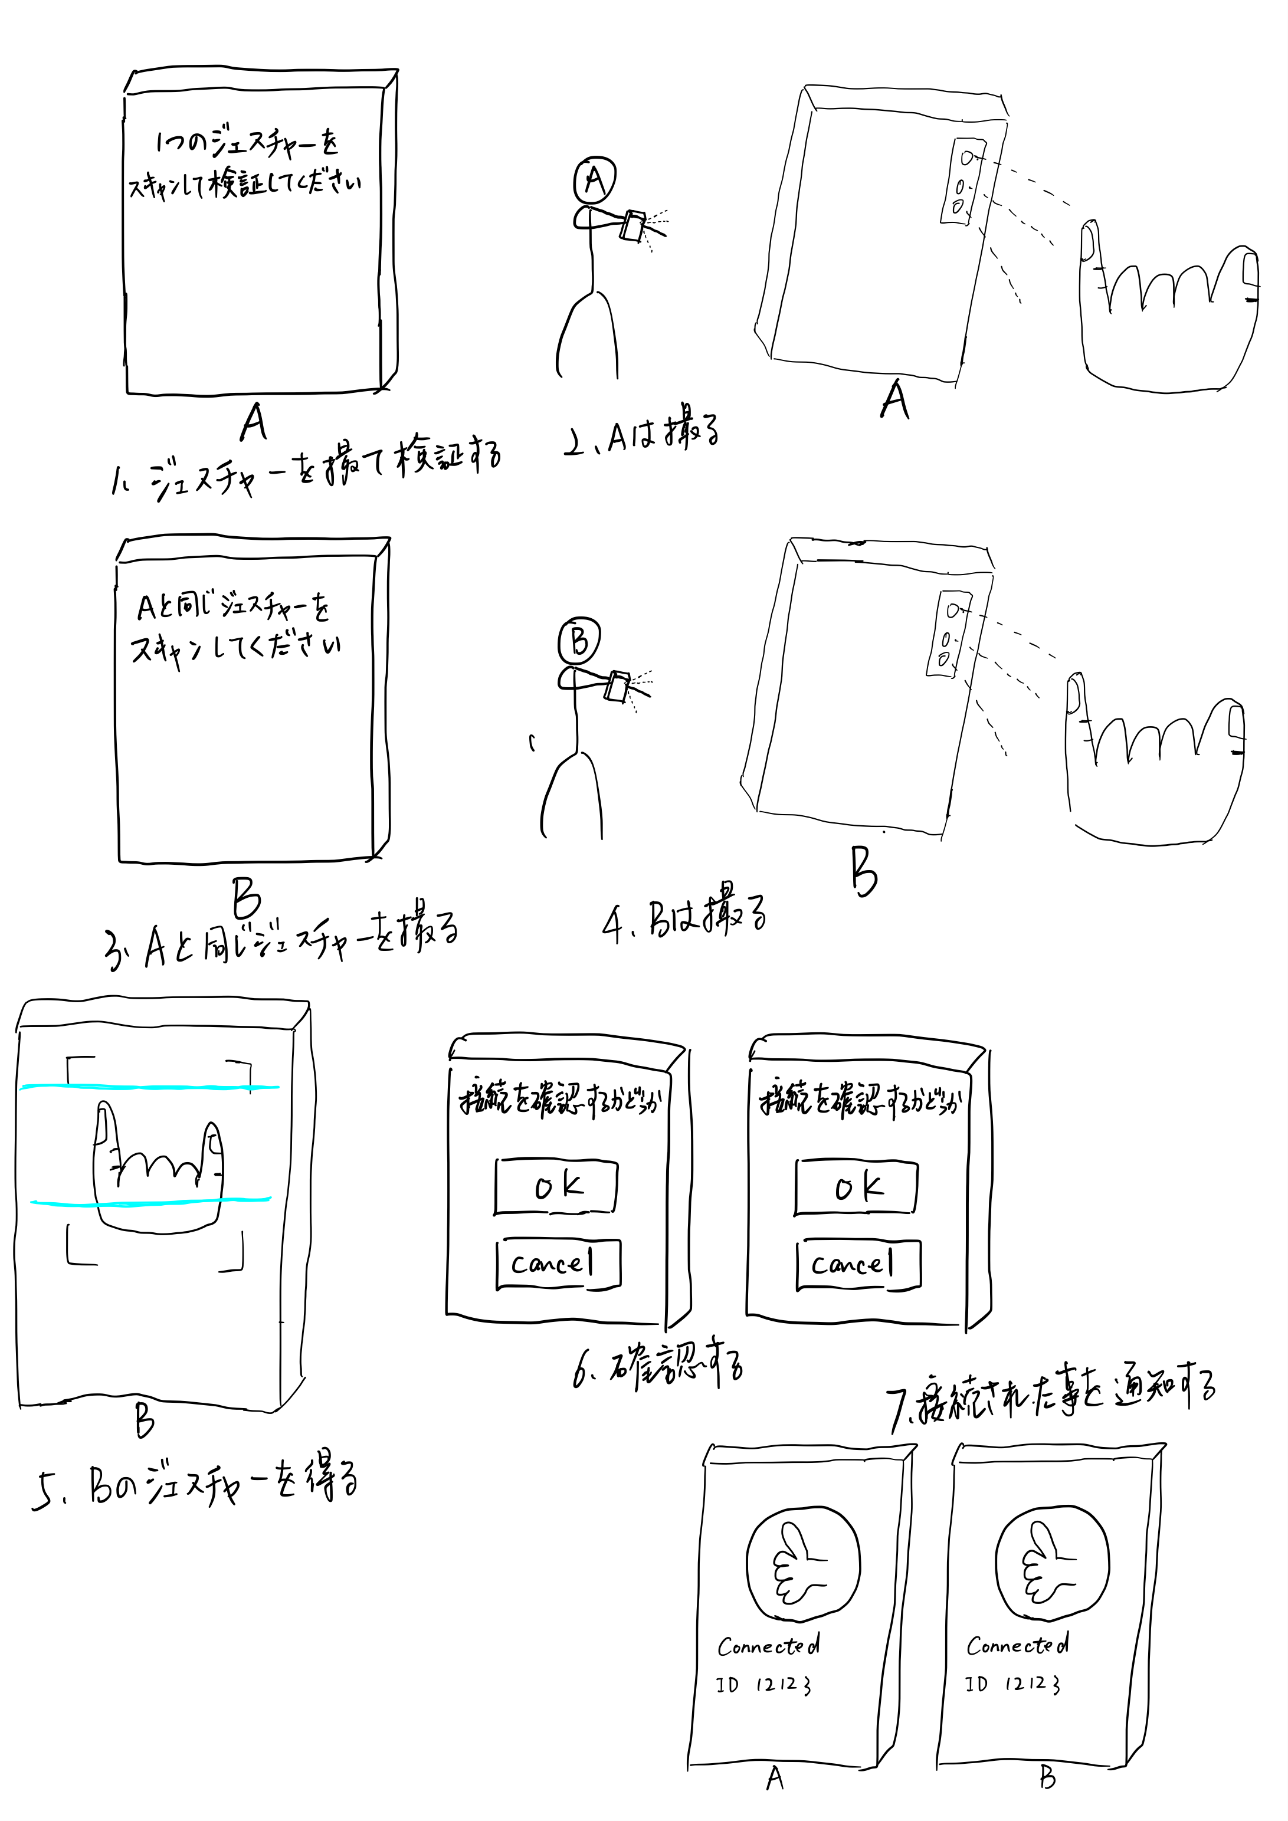 1つのジェスチャーを
スキャンして検証してください
A
A
A
1、ジェスチャーを撮て検証する
2、Aは撮る
Aと同じジェスチャーを
スキャンしてください
B
B
B
3、Aと同じジェスチャーを撮る
4、Bは撮る
B
5、Bのジェスチャーを得る
接続を確認するかどうか
OK
cancel
接続を確認するかどうか
OK
cancel
6、確認する
7、接続された事を通知する
Connected
ID 12123
A
Connected
ID 12123
B